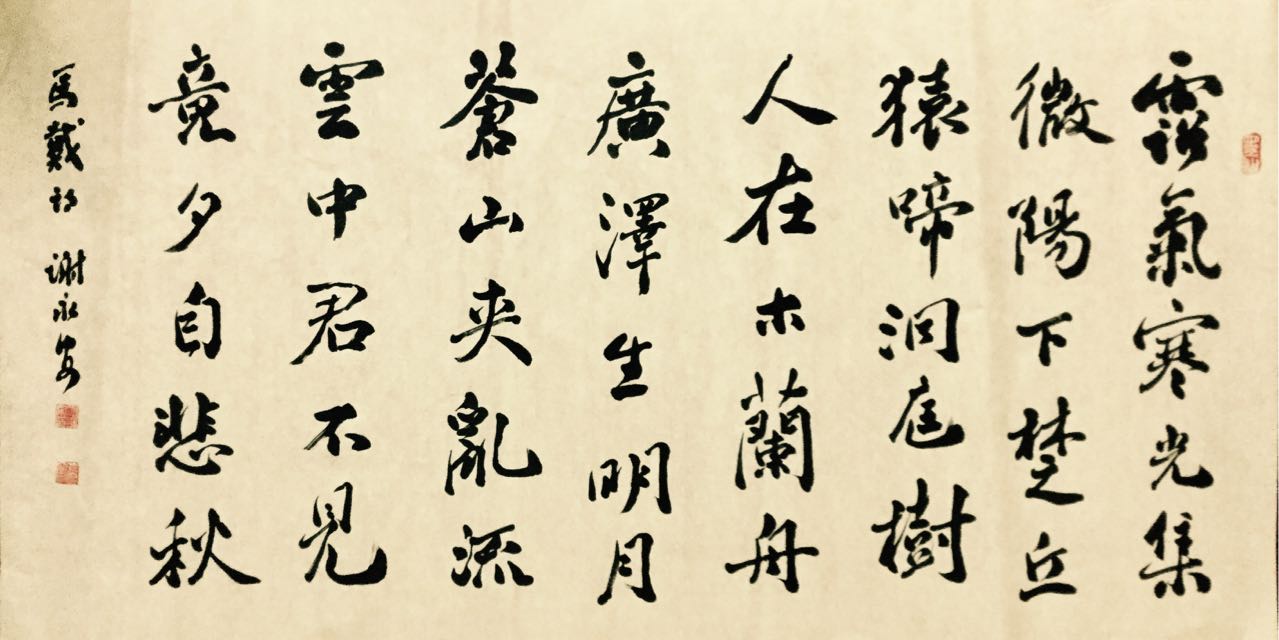 露氣寒光集
微陽下楚丘
猿啼洞庭樹
人在木蘭舟
廣澤生明月
蒼山夾亂流
雲中君不見
竟夕自悲秋
馬戴詩 謝永安